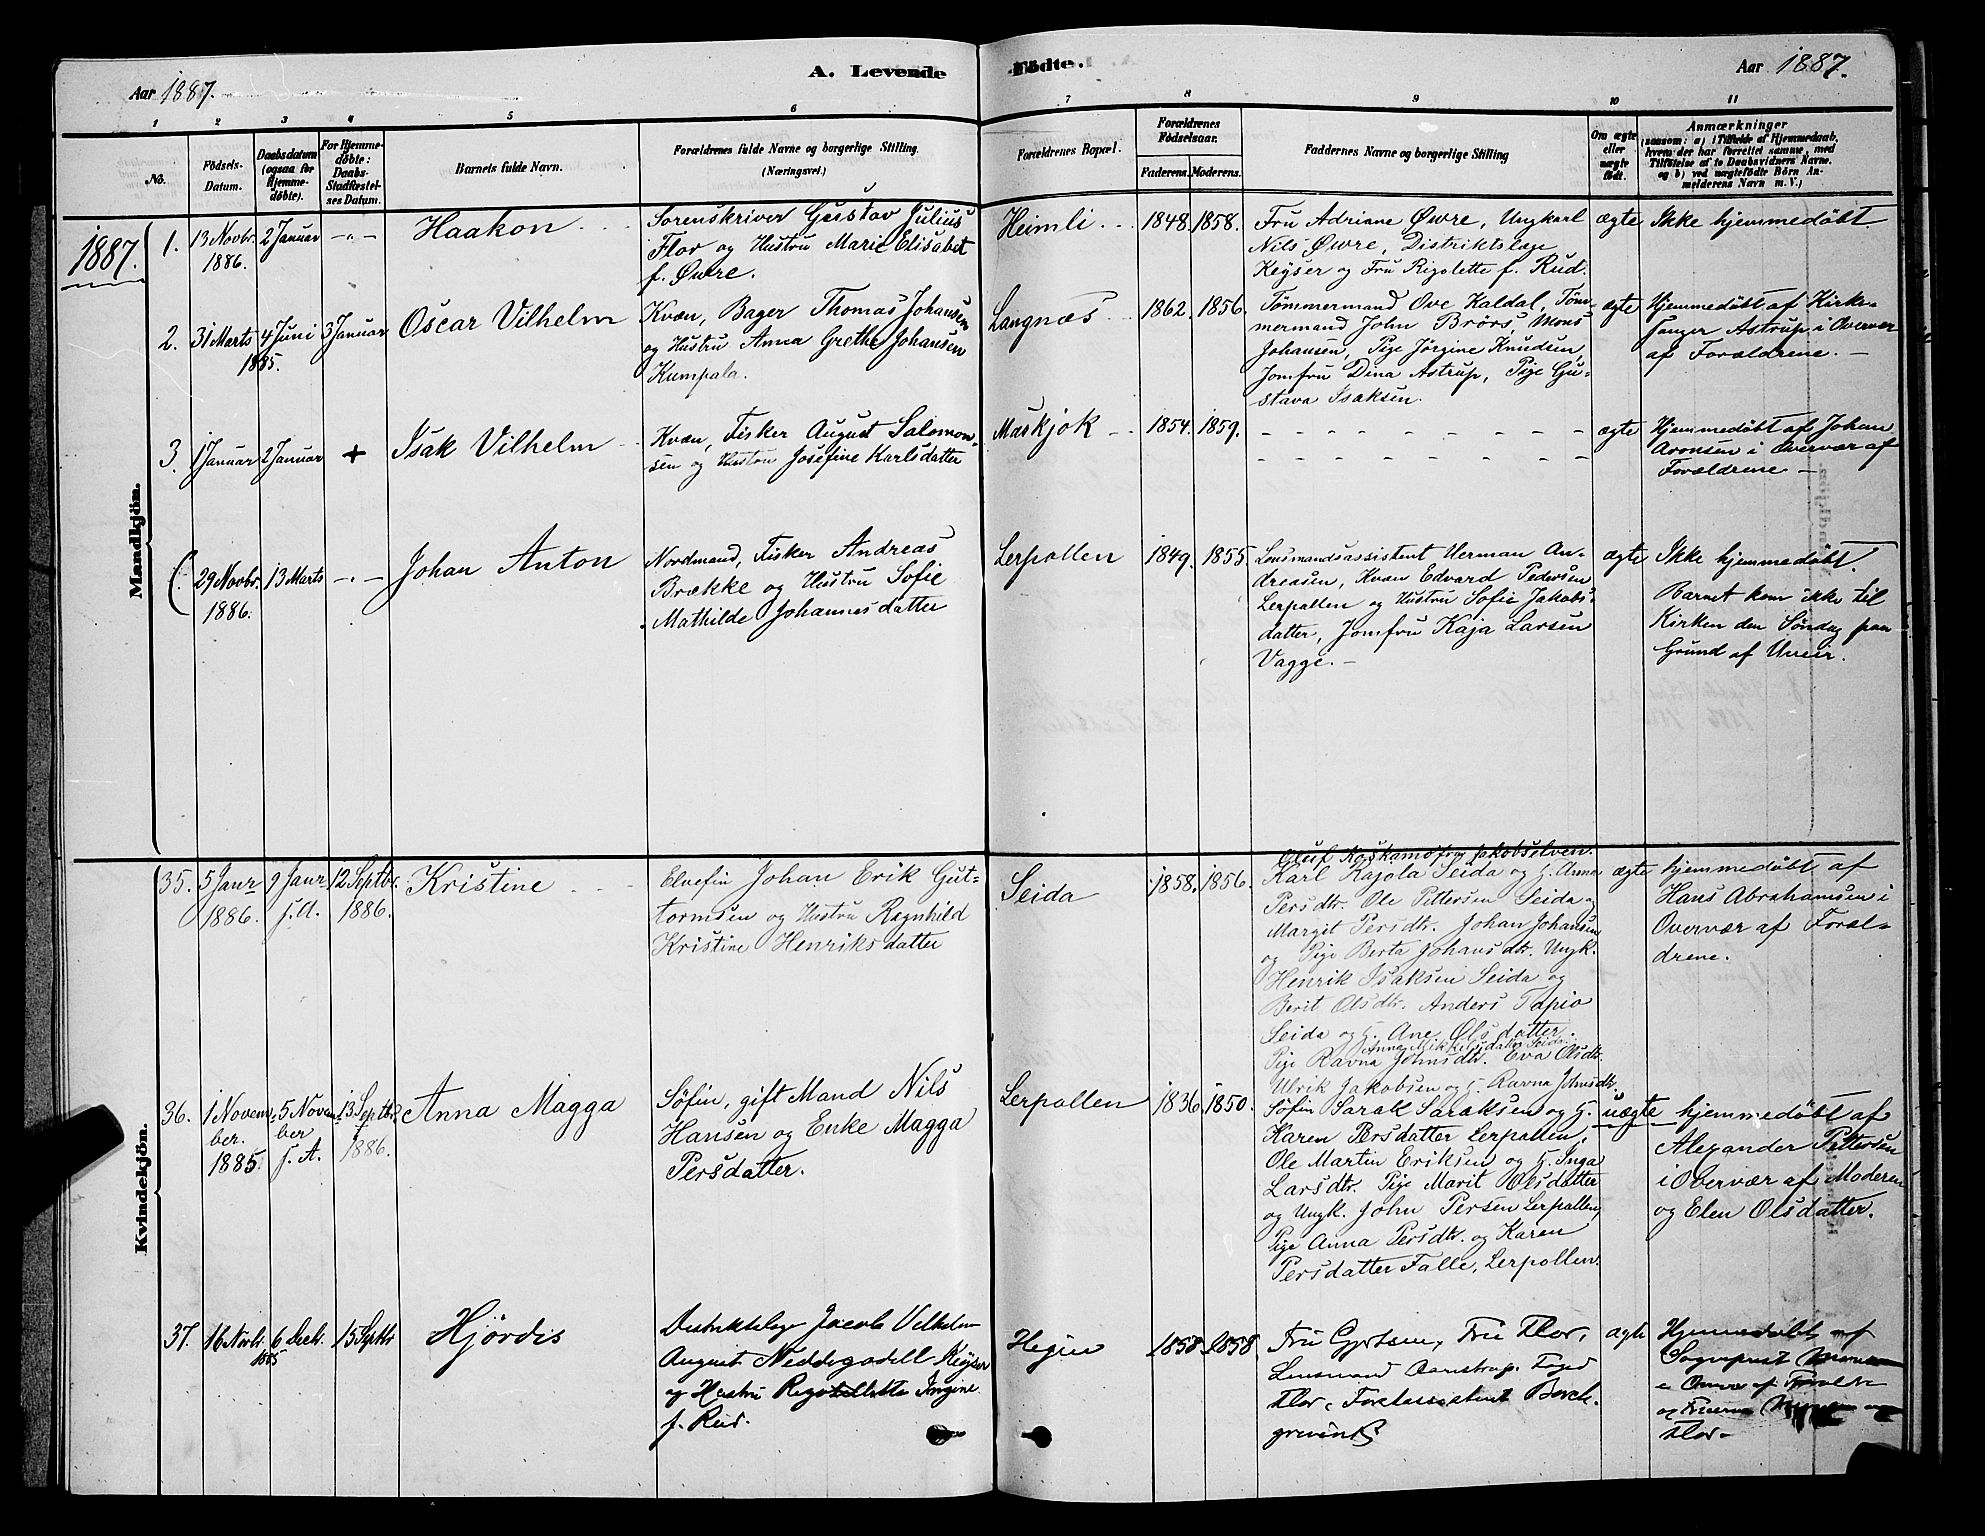 A. Levende Fødte.
Aar 1887.
Aar 1887.
1 2 3 4 5 6 7 8 9 10 11
No.
Fødsels-
Datum.
Daabsdatum
(ogsaa for
Hjemme-
døbte).
For Hjemme-
døbte:
Daabs-
Stadfæstel-
ses Datum.
Barnets fulde Navn.
Forældrenes fulde Navne og borgerlige Stilling.
(Næringsvei.)
Forældrenes Bopæl.
Forældrenes
Fødselsaar.
Faderens.
Moderens.
Faddernes Navne og borgerlige Stilling
Om ægte
eller
uægte
født.
Anmærkninger
(saasom: a) i Tilfælde af Hjemmedaab,
hvem der har forrettet samme, med
Tilføielse af to Daabsvidners Navne.
og b) ved uægtefødte Børn An-
melderens Navn m. V.)
Mandkjön.
1887.
1.
13 Novbr.
1886.
2 Januar
-„-
Haakon
Sorenskriver Gustav Julius
Flor og Hustru Marie Elisabet
f. Øwre.
Heimli
1848.
1858.
Fru Adriane Øwre, Ungkarl
Nils Øwre, Distriktslæge
Keyser og Fru Rigolette f. Rud.
ægte
Ikke hjemmedøbt.
2.
31 Marts
4 Juni
1885.
3 Januar
Oscar Vilhelm
Kvæn, Bager Thomas Johansen
og Hustru Anna Grethe Johansen
Kumpala.
Langnæs
1862.
1856.
Tømmermand Ove Kaldal, Töm-
mermand John Brörs, Mons
Johansen, Pige Jörgine Knudsen,
Jomfru Dina Astrup, Pige Gu-
stava Isaksen.
ægte
Hjemmedøbt af Kirke-
sanger Astrup i Overvær
af Forældrene. –
3.
1 Januar
2 Januar
+
Isak Vilhelm
Kvæn, Fisker August Salomon-
sen og Hustru Josefine Karlsdatter
Maskjok
1854.
1859.
ægte
Hjemmedøbt af Johan
Aronsen i Overvær af
Forældrene –
29 Novbr.
1886.
13 Marts
-„-
Johan Anton
Nordmand, Fisker Andreas
Brække og Hustru Sofie
Mathilde Johannesdatter
Lerpollen
1849.
1855.
Lensmandsassistent Herman An-
dreasen, Kvæn Edvard Pedersen
Lerpollen og Hustru Sofie Jakobs-
datter, Jomfru Kaja Larsen
Vagge. –
ægte
Ikke hjemmedøbt.
Barnet kom ikke til
Kirken den Søndag paa
Grund af Uveir.
Kvindekjön.
35.
5 Janr
1886.
9 Janr
s. A.
12 Septbr.
1886.
Kristine
Elvefin Johan Erik Gut-
tormsen og Hustru Ragnhild
Kristine Henriksdatter
Seida
1858.
1856.
Oluf Koskamo fra Jakobselven.
Karl Kajola Seida og H. Anna
Persdtr. Ole Pittersen Seida og
Margit Persdtr. Johan Johansen
og Pige Berta Johansdtr. Ungk.
Henrik Isaksen Seida og
Berit Olsdtr. Anders Tapio
Seida og H. Ane Olsdatter.
Anna Mikkelsdatter Seida
Pige Ravna Johnsdtr. Eva Olsdtr.
Ulrik Jakobsen og H. Ravna Johnsdtr.
ægte
hjemmedøbt af
Hans Abrahamsen i
Overvær af Foræl-
drene.
36.
1 Novem-
ber.
1885.
5 Novem-
ber
s. A.
13 Septbr.
1886.
Anna Magga
Søfin, gift Mand Nils
Hansen og Enke Magga
Persdatter.
Lerpollen
1836.
1850.
Søfin Sarak Saraksen og H.
Karen Persdatter Lerpollen,
Ole Martin Eriksen og H. Inga
Larsdtr. Pige Marit Olsdatter
og Ungk. John Persen Lerpollen,
Pige Anna Persdtr. og Karen
Persdatter Falle, Lerpollen.
uægte
hjemmedøbt af
Alexander Pittersen
i Overvær af Moderen
og Elen Olsdatter.
37.
16 Novbr.
1885
6 Decb.
15 Septbr
Hjördis
Distriktslæge Jacob Vilhelm
August Keyser
og Hustru Ingine
f. Rud.
1858.
1858.
Fru Gjertsen, Fru Flor,
Lensmand Aarstrup. Foged
Flor, Forstassistent Borch-
grevink
ægte
Hjemmedøbt af
Sogneprest
i Overvær af Forældre
og Fruerne
Flor –